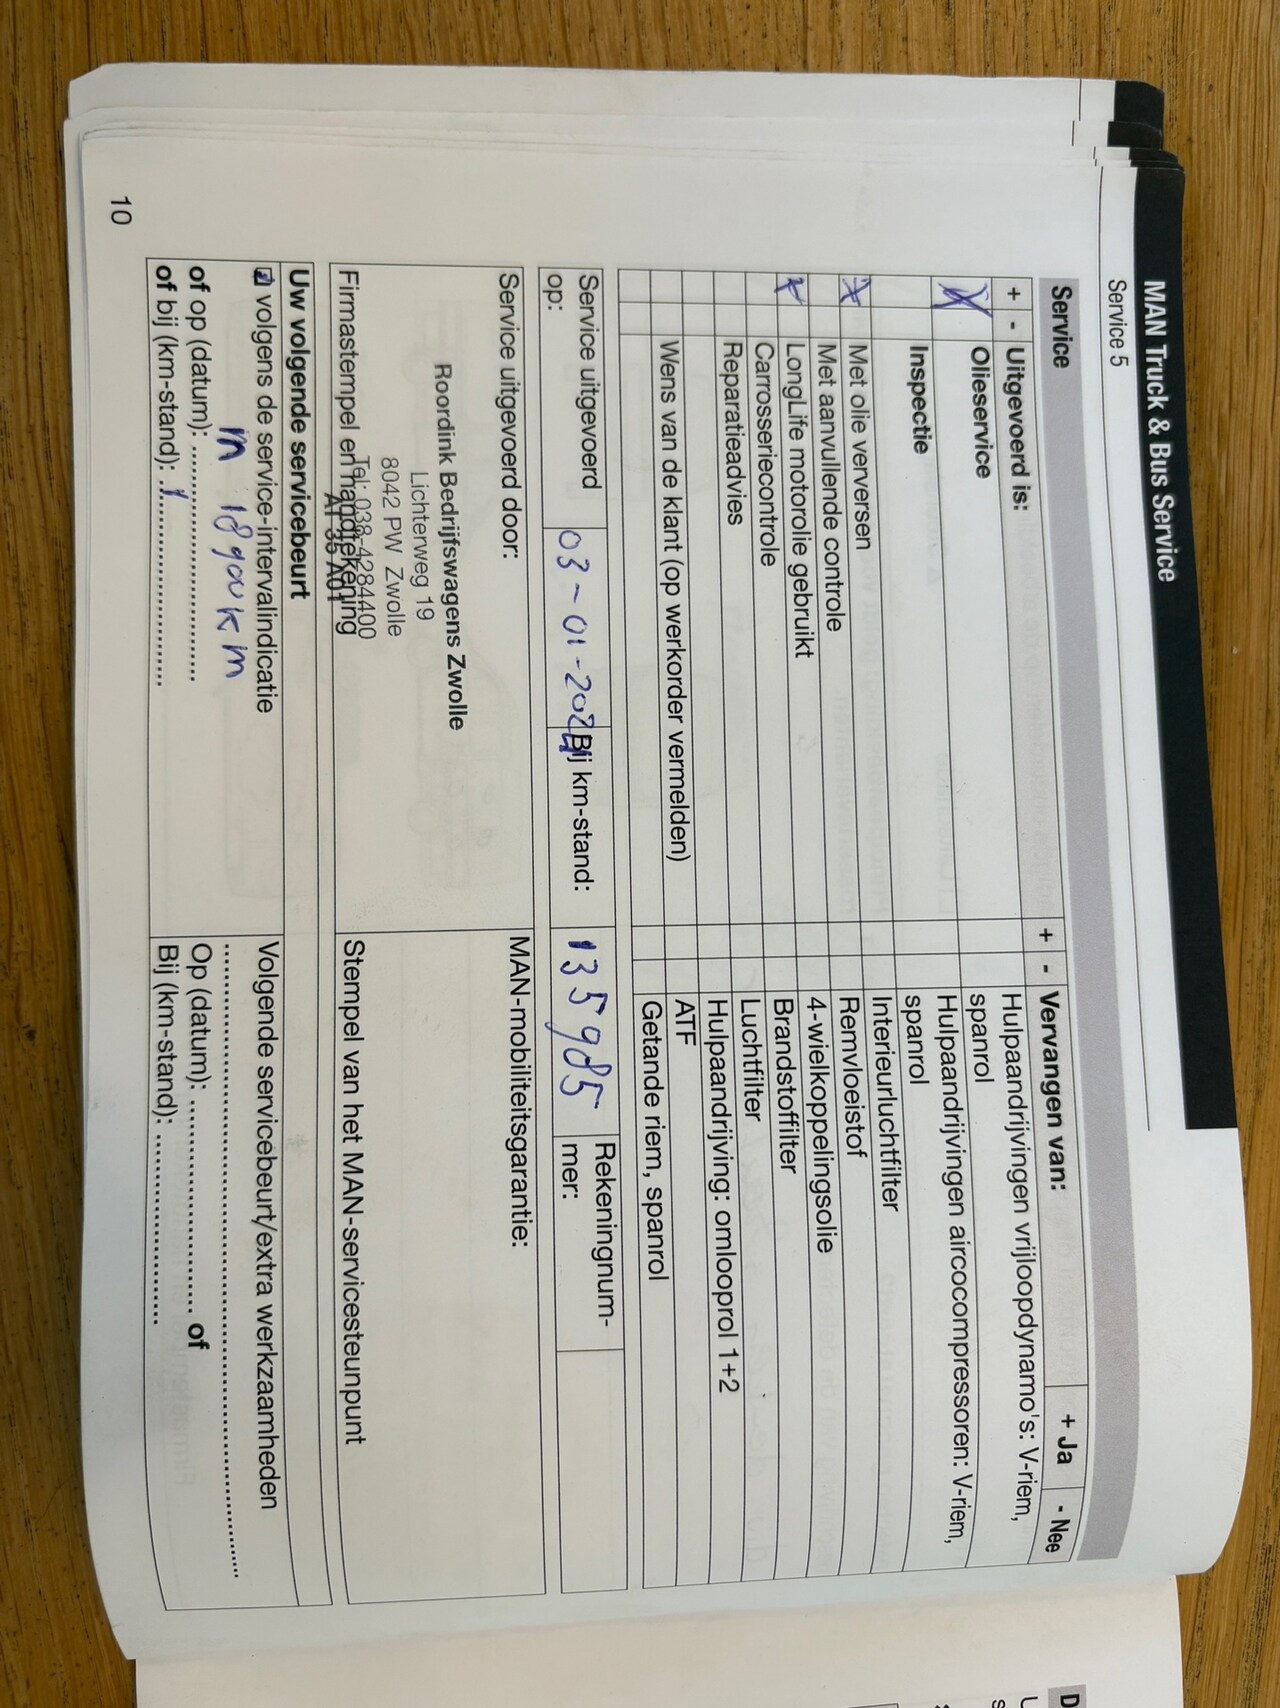 MAN Truck & Bus Service
Service 5
Service
+ Ja
- Nee
+ - Uitgevoerd is:
Olieservice
Inspectie
Met olie verversen
Met aanvullende controle
LongLife motorolie gebruikt
Carrosseriecontrole
Reparatieadvies
Wens van de klant (op werkorder vermelden)
+ - Vervangen van:
Hulpaandrijvingen vrijloopdynamo's: V-riem,
spanrol
Hulpaandrijvingen aircocompressoren: V-riem,
spanrol
Interieurluchtfilter
Remvloeistof
4-wielkoppelingsolie
Brandstoffilter
Luchtfilter
Hulpaandrijving: omlooprol 1+2
ATF
Getande riem, spanrol
Service uitgevoerd
op:
03-01-2024
Bij km-stand:
135985
Rekeningnum-
mer:
Service uitgevoerd door:
Roordink Bedrijfswagens Zwolle
Lichterweg 19
8042 PW Zwolle
Tel: 038-4284400
AT 35 A01
Firmastempel en handtekening
MAN-mobiliteitsgarantie:
Stempel van het MAN-servicesteunpunt
Uw volgende servicebeurt
volgens de service-intervalindicatie
of op (datum):
of bij (km-stand):
Volgende servicebeurt/extra werkzaamheden
Op (datum): of
Bij (km-stand):
10